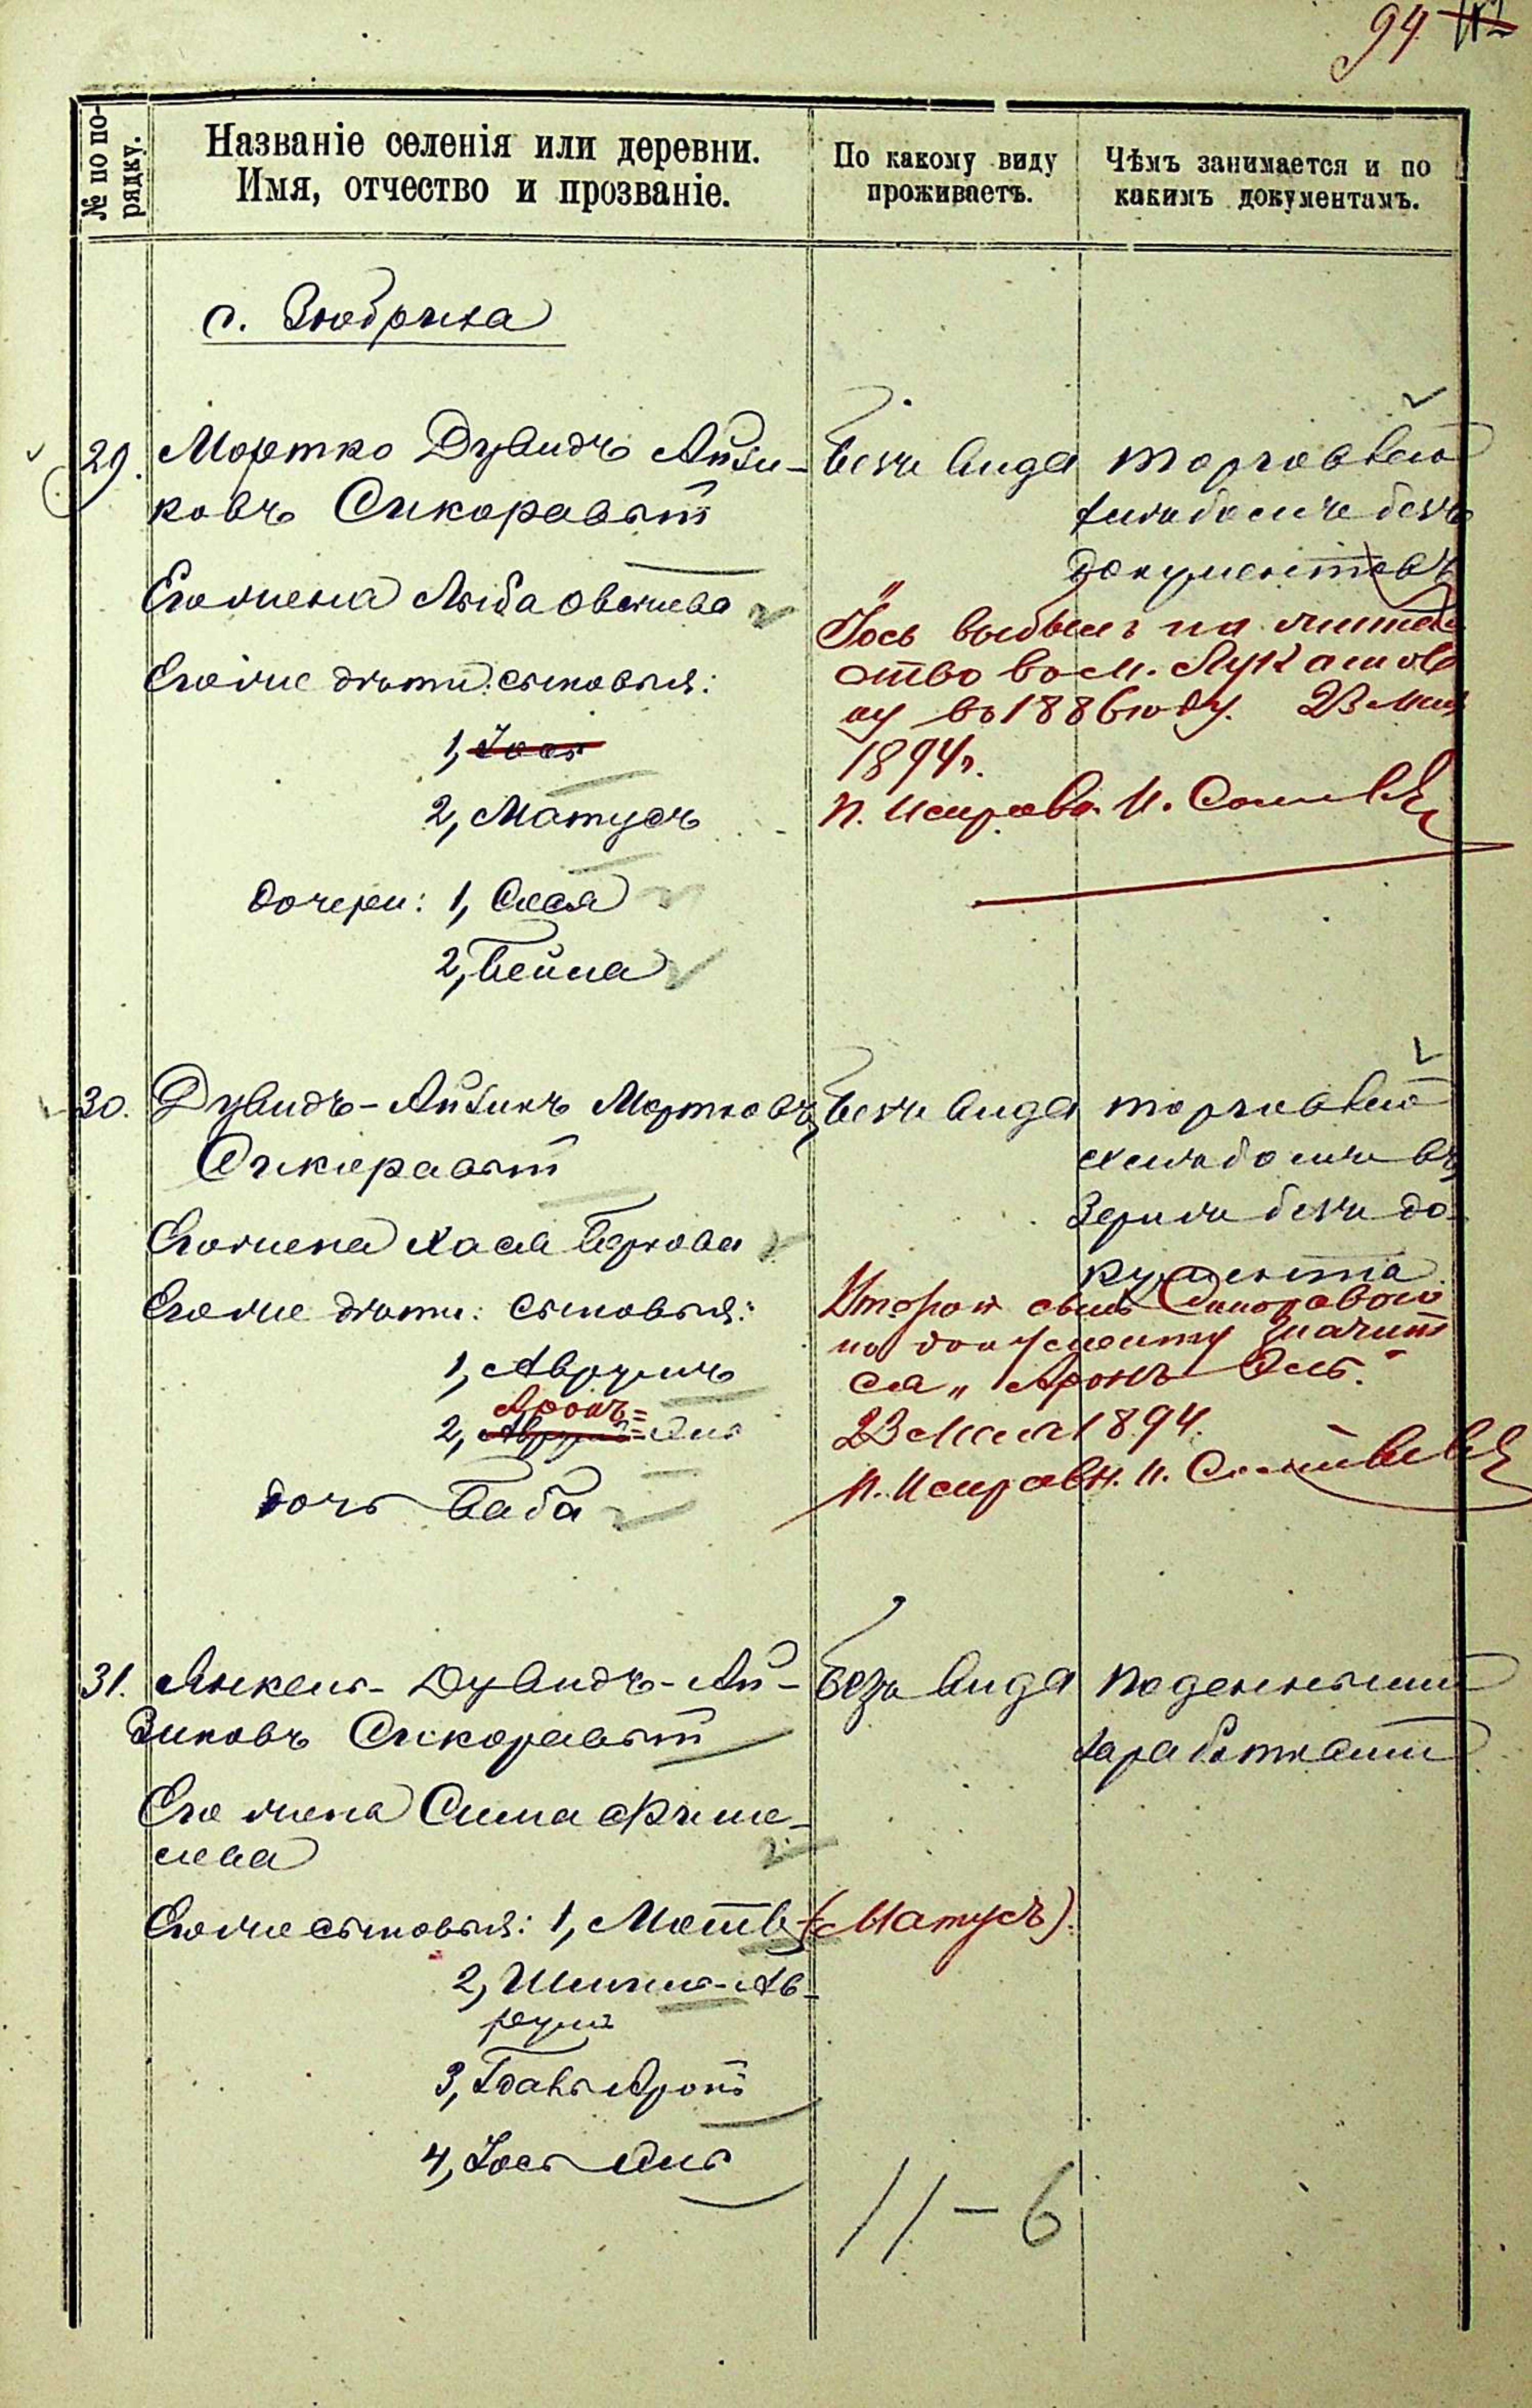 94
№ по по-
рядку.
Названіе селенія или деревни.
Имя, отчество и прозваніе.
По какому виду
проживаетъ.
Чѣмъ занимается и по
какимъ документамъ.
с. Зюбриха
29. Мортко Дувидъ Айзи-
ковъ Сикоравыт
Его жена Люба Овсиева
Его же дѣти: сыновья:
1, Іось
2, Матусъ
дочери: 1, Сося
2, Бейла
Безъ вида
торговлей
хлѣбомъ безъ
документовъ
Іось выбылъ на житель
ство въ м. Лукашов
ку въ 1886 году. 23 мая
1894 г.
П. Исправн. И.
30. Дувидъ-Айзикъ Мортковъ
Сикоравыт
Его жена Хася Беркова
Его же дѣти: сыновья:
1, Аврумъ
Аронъ=
2, Аврумъ=Эль
дочь Баба
Безъ вида
торговлей
хлѣбомъ въ
безъ до-
кумента.
Второй сынъ Сикоравого
по документу значит
ся „Аронъ Эль."
23 мая 1894.
П. Исправн. И.
31. Янкель-Дувидъ-Ай-
зиковъ Сикоравыт
Его жена Сима Фише-
лева
Его же сыновья: 1, (Матусъ).
2, Шмиль-Ав-
румъ
3, Аронъ
4, Іось Эль
Безъ вида
поденными
заработками
11-6